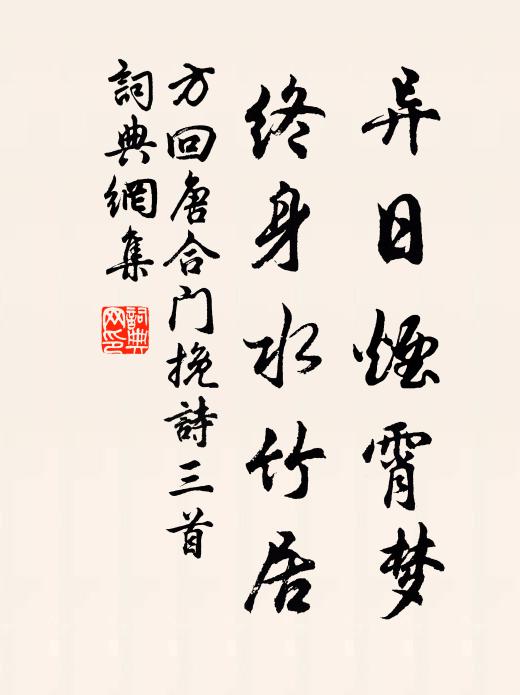 异日煙霄梦
终身水竹居
方回唐合门挽詩三首
詞典網集
詞典
网印